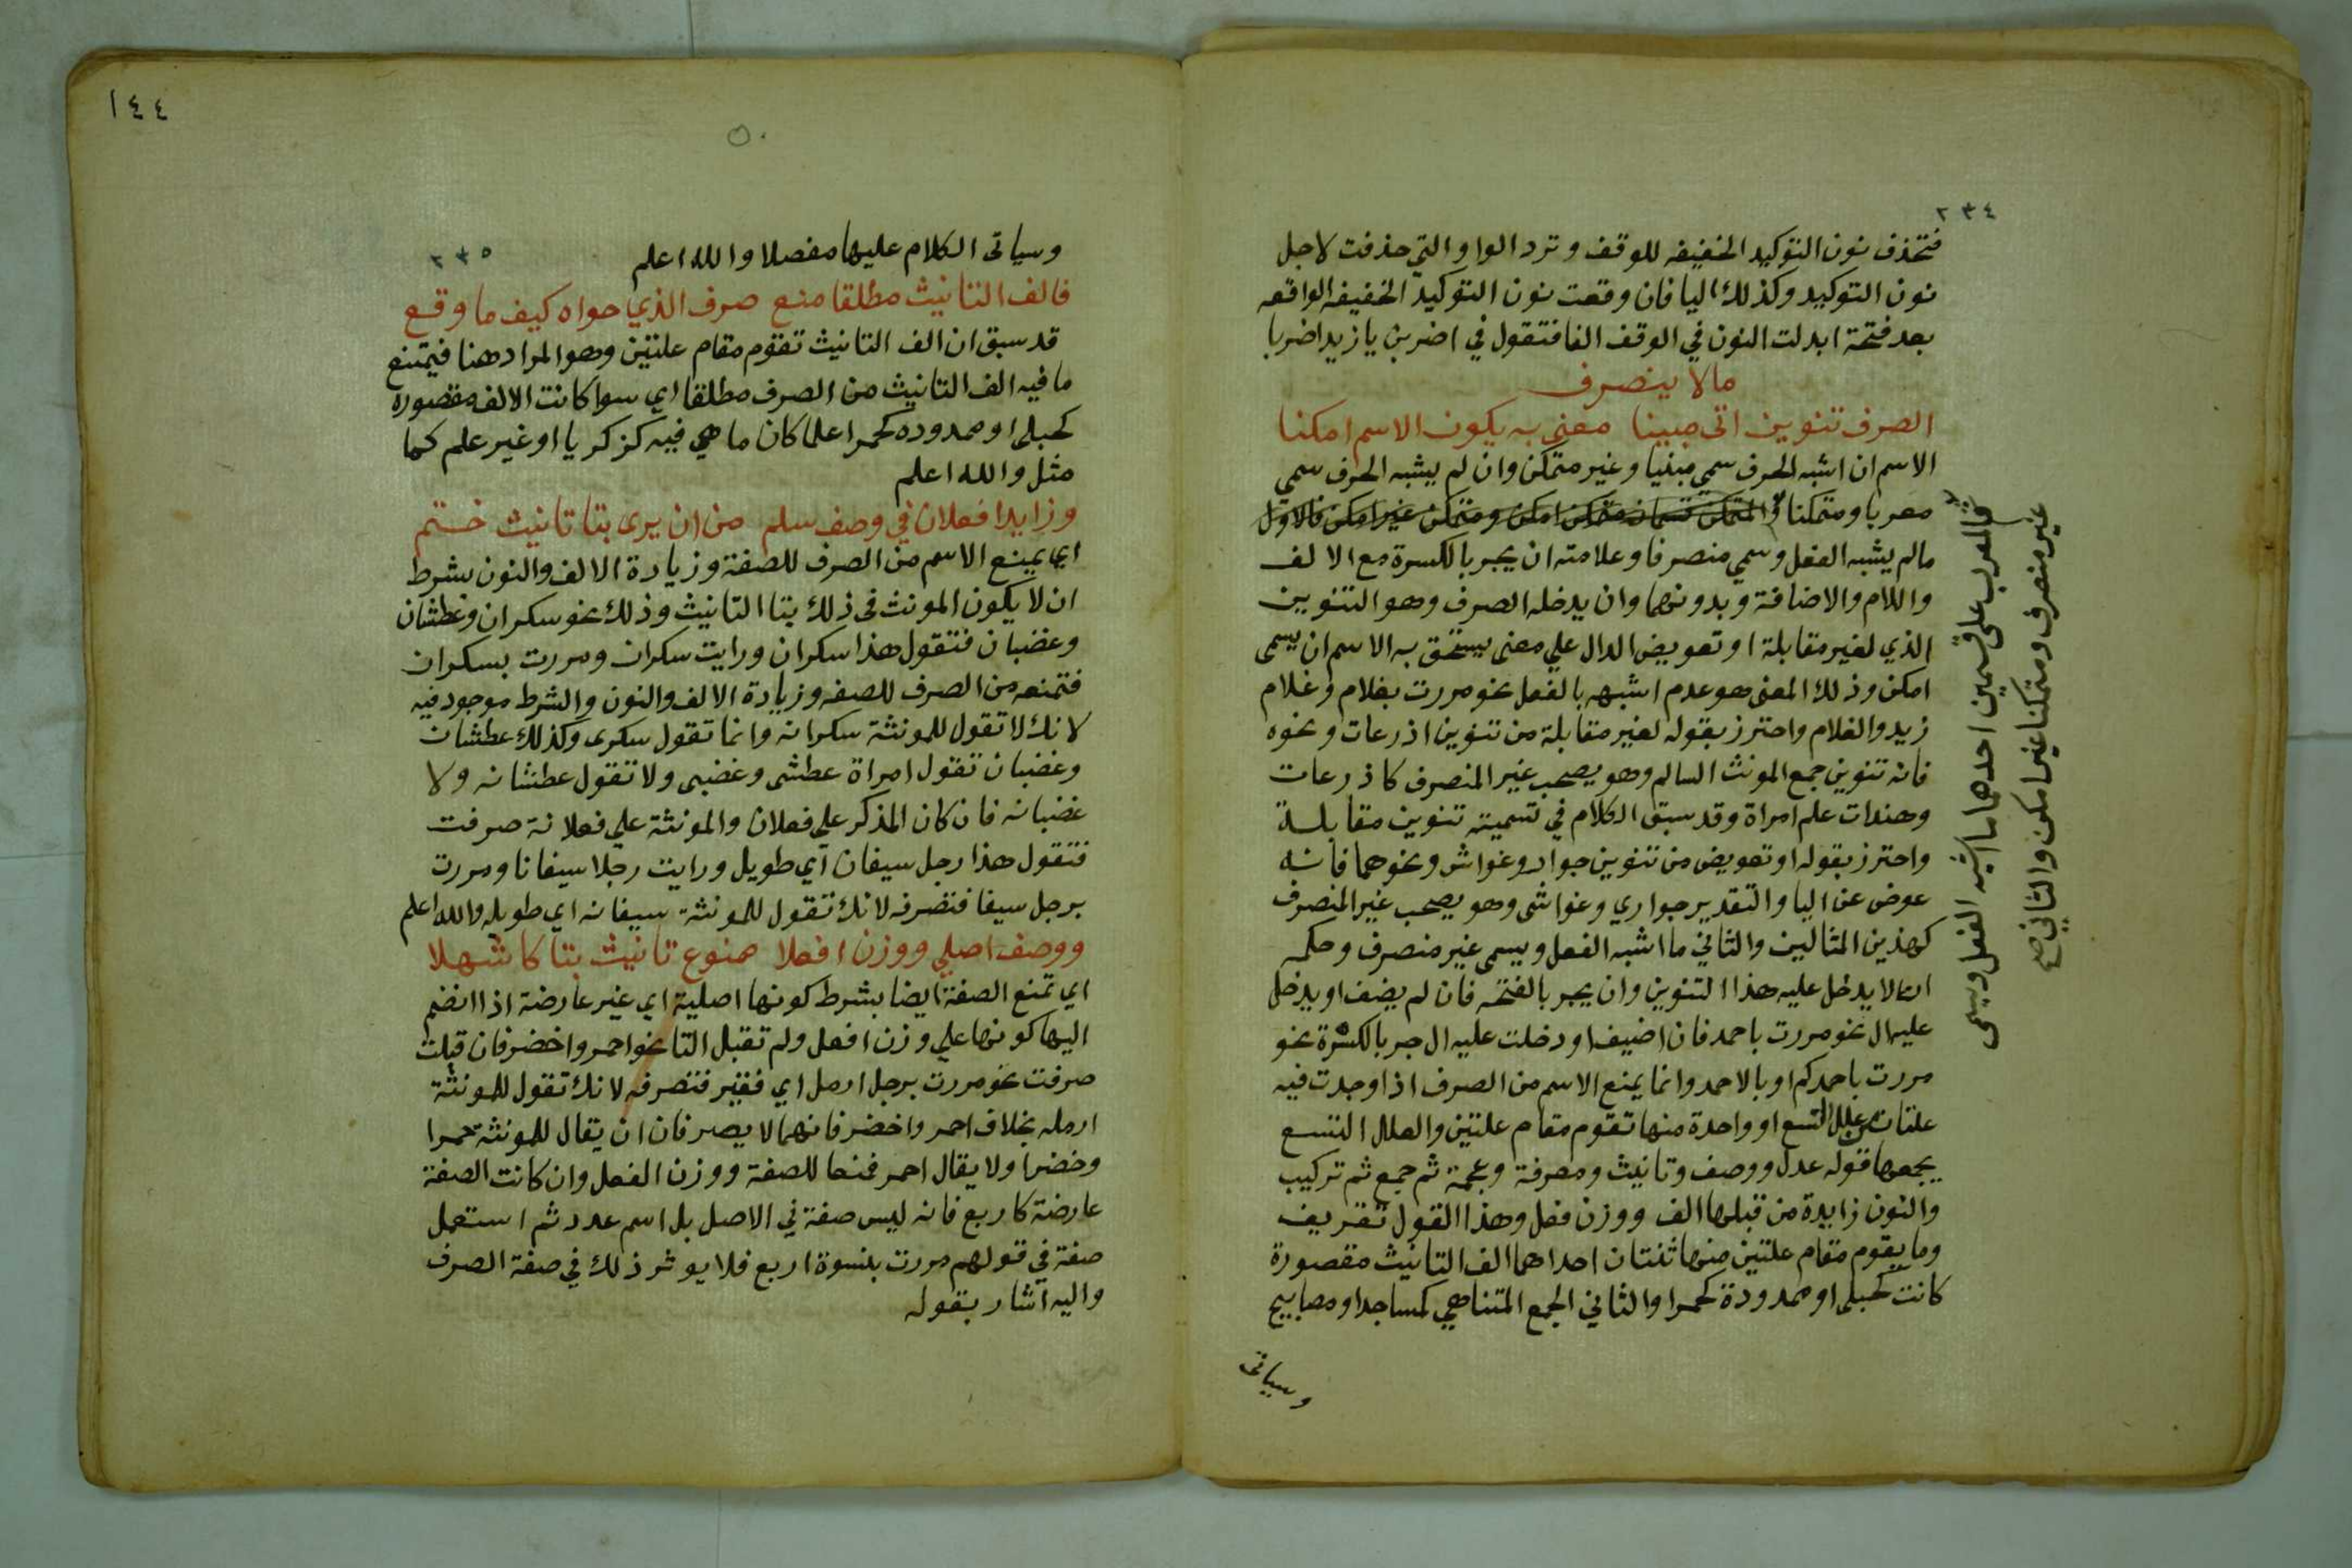 ٢٣٤
فتحذف نون التوكيد الخفيفه للوقف وترد الواو التي حذفت لاجل
نون التوكيد وكذلك اليا فان وقعت نون التوكيد الخفيفه الواقعه
بعد فتحة ابدلت النون في الوقف الفا فتقول في اضربن يا زيد اضربا
مالا ينصرف
الصرف تنوين اتى مبينا معنى به يكون الاسم امكنا
الاسم ان اشبه الحرف سمي مبنيا وغير متمكن وان لم يشبه الحرف سمي
معربا ومتمكنا والمتمكن قسمان متمكن امكن ومتمكن غير امكن فالاول
مالم يشبه الفعل وسمي منصرفا وعلامته ان يجر بالكسرة مع الالف
واللام والاضافة وبدونهما وان يدخله الصرف وهو التنوين
الذي لغير مقابلة او تعويض الدال علي معنى يستحق به الاسم ان يسمى
امكن وذلك المعنى هو عدم اشبهه بالفعل نحو مررت بغلام وغلام
زيد والغلام واحترز بقوله لغير مقابلة من تنوين اذرعات ونحوه
فانه تنوين جمع المونث السالم وهو يصحب غير المنصرف كاذرعات
وهندات علم امراة وقد سبق الكلام في تسميته تنوين مقابلة
واحترز بقوله او تعويض من تنوين جوار وغواش ونحوهما فانه
عوض عن اليا والتقدير جواري وغواشى وهو يصحب غير المنصرف
كهذين المثالين والثاني ما اشبه الفعل ويسمى غير منصرف وحكمه
ان لا يدخل عليه هذا التنوين وان يجر بالفتحه فان لم يضف او يدخل
عليه ال نحو مررت باحمد فان اضيف او دخلت عليه ال جر بالكسرة نحو
مررت باحمدكم او بالاحمد وانما يمنع الاسم من الصرف اذا وجدت فيه
علتان من علل التسع او واحدة منها تقوم مقام علتين والعلل التسع
يجمعها قوله عدل ووصف وتانيث ومعرفة وعجمة ثم جمع ثم تركيب
والنون زايدة من قبلها الف ووزن فعل وهذا القول تقريب
وما يقوم مقام علتين منها ثنتان احداهما الف التانيث مقصورة
كانت كحبلى او ممدودة كحمرا والثاني الجمع المتناهي كمساجد او مصابيح
وسياتى
والمعرب على قسمين احدهما ما اشبه الفعل ويسمى
غير منصرف ومتمكنا غير امكن والثاني صح
١٤٤
٢٣٥
وسياتى الكلام عليها مفصلا والله اعلم
فالف التانيث مطلقا منع صرف الذي حواه كيف ما وقع
قد سبق ان الف التانيث تقوم مقام علتين وهو المراد هنا فيمتنع
ما فيه الف التانيث من الصرف مطلقا اي سوا كانت الالف مقصوره
كحبلى او ممدوده كحمرا علما كان ما هي فيه كزكريا او غير علم كما
مثل والله اعلم
وزايدا فعلان في وصف سلم من ان يرى بتا تانيث ختم
اي يمنع الاسم من الصرف للصفة وزيادة الالف والنون بشرط
ان لا يكون المونث فى ذلك بتا التانيث وذلك نحو سكران وعطشان
وغضبان فتقول هذا سكران ورايت سكران ومررت بسكران
فتمنعه من الصرف للصفه وزيادة الالف والنون والشرط موجود فيه
لانك لا تقول للمونثة سكرانه وانما تقول سكرى وكذلك عطشان
وغضبان تقول امراة عطشى وغضبى ولا تقول عطشانه ولا
غضبانه فان كان المذكر علي فعلان والمونثة علي فعلانة صرفت
فتقول هذا رجل سيفان اي طويل ورايت رجلا سيفانا ومررت
برجل سيفا فتصرفه لانك تقول للمونثة سيفانه اي طويله والله اعلم
ووصف اصلي ووزن افعلا ممنوع تانيث بتا كاشهلا
اي تمنع الصفة ايضا بشرط كونها اصلية اي غير عارضة اذا انضم
اليها كونها علي وزن افعل ولم تقبل التا نحو احمر واخضر فان قبلت
صرفت نحو مررت برجل ارمل اي فقير فتصرفه لانك تقول للمونثة
ارمله بخلاف احمر واخضر فانهما لا يصرفان ان يقال للمونثة حمرا
وخضرا ولا يقال احمر فمنعا للصفة ووزن الفعل وان كانت الصفة
عارضة كاربع فانه ليس صفة في الاصل بل اسم عدد ثم استعمل
صفة في قولهم مررت بنسوة اربع فلا يوثر ذلك في صفة الصرف
واليه اشار بقوله